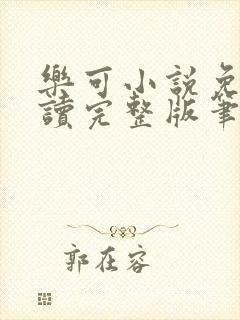 樂可小說免
讀完整版筆
郭在容